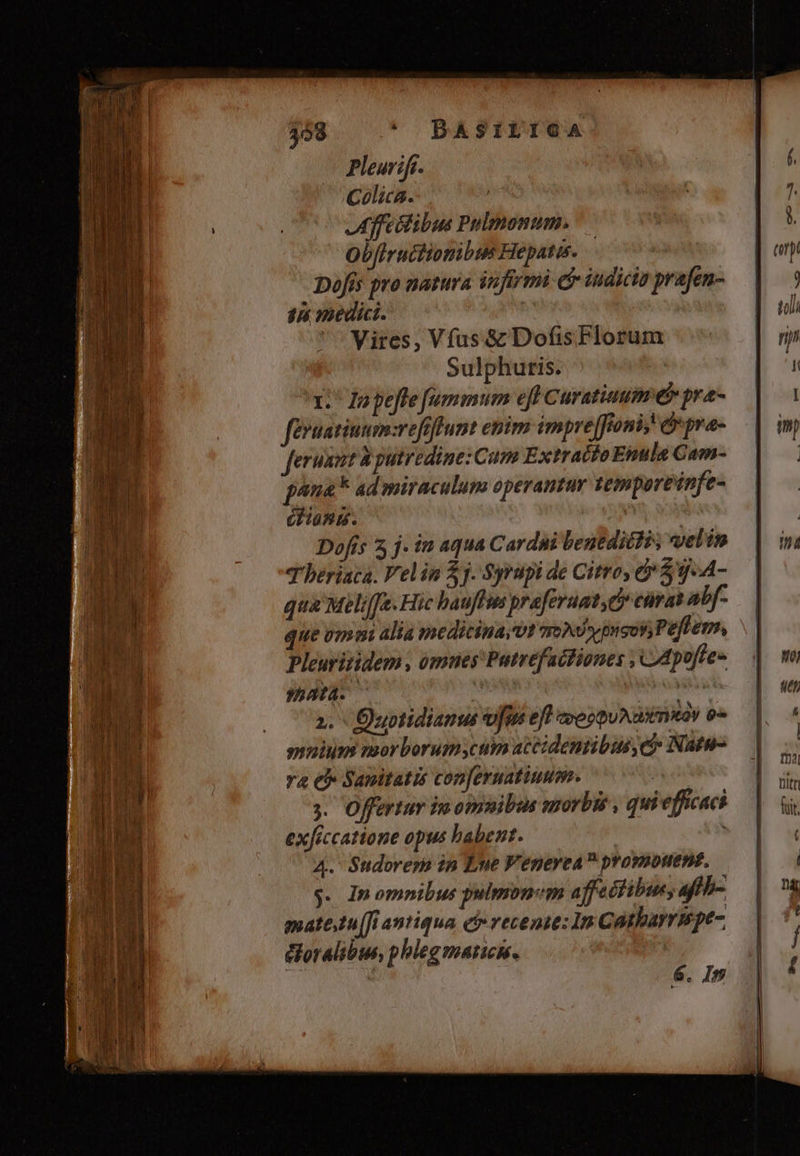 368 * BASILICA
Pleurisi.
Colica.
Affectibus Pulmonum.
Obstructionibus Hepatis.
Dosis pro natura infirmi & iudicio præsen-
tis medici.
Vires, Vsus & Dosis Florum
Sulphuris.
1. In peste summum est Curatiuum & præ-
seruatiuum: resistunt enim impressioni, & præ-
seruant à putredine: Cum Extracto Enulæ Cam-
panæ* ad miraculum operantur tempore infe-
ctionis.
Dosis ʒ j. in aqua Cardui benedicti, vel in
Theriaca. Vel in ℥ j. Syrupi de Citro, & ℥ ij. A-
quæ Melissæ. Hic haustus præseruat, & curat abs-
que omni alia medicina, vt πολύχρηστον, Pestem,
Pleuritidem, omnes Putrefactiones, Aposte-
mata.
2. Quotidianus vsus est προφυλακτικὸν o-
mnium morborum, cum accidentibus, & Natu-
ra & Sanitatis conseruatiuum.
3. Offertur in omnibus morbis, qui efficaci
exsiccatione opus habent.
4. Sudorem in Lue Venerea* promouent.
5. In omnibus pulmonum affectibus, asth-
mate, tussi antiqua & recente: In Catharris pe-
ctoralibus, phlegmaticis.
6. In